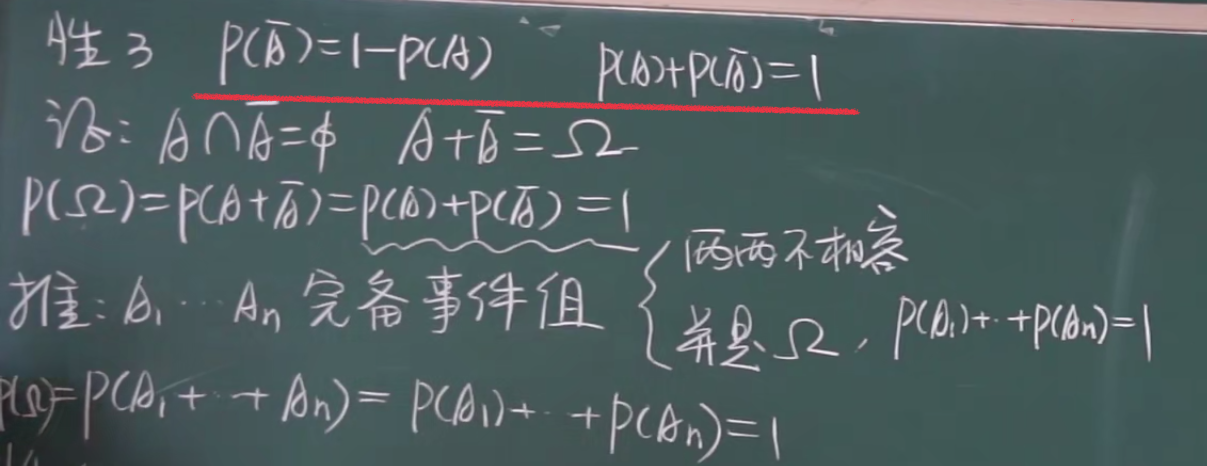 性3 P(A̅)=1-P(A) P(A)+P(A̅)=1
证: A∩A̅=ϕ A+A̅=Ω
P(Ω)=P(A+A̅)=P(A)+P(A̅)=1
推: A₁…Aₙ 完备事件组 { 两两不相容
并是Ω, P(A₁)+…+P(Aₙ)=1
P(Ω)=P(A₁+…+Aₙ)=P(A₁)+…+P(Aₙ)=1